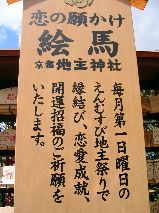 恋の願かけ
絵馬
京都地主神社
毎月第一日曜日の
えんむすび地主祭りで
縁結び、恋愛成就、
開運招福のご祈願を
いたします。